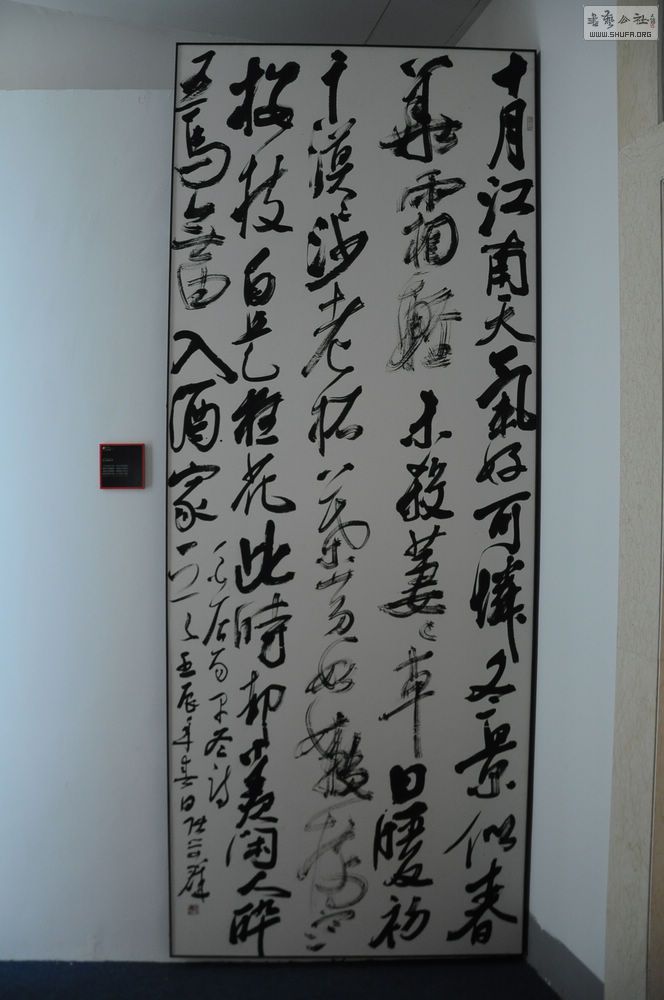 十月江南天氣好可憐冬景似春
華霜輕未殺萋〻草日暖初
干漠〻沙老柘葉黃如嫩樹寒
櫻枝白是狂花此時却羨閑人醉
五馬無由入酒家
白居易早冬詩
壬辰年春日
書藝公社
WWW.SHUFA.ORG